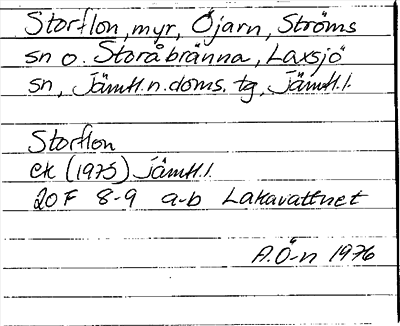 Storflon, myr, Öjarn, Ströms
sn o. Storåbränna, Laxsjö
sn, Jämtl. n. doms. tg, Jämtl. l.
Storflon
ek (1975) Jämtl. l.
20F 8-9 a-b Lakavattnet
A. Ö-n 1976